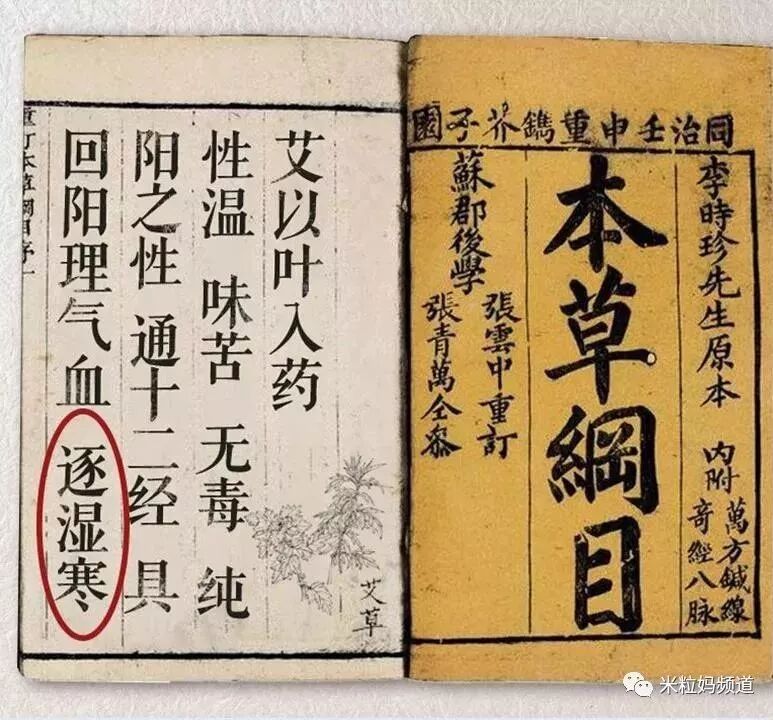 同治壬申重鐫芥子園
李時珍先生原本 内附
萬方鍼線
奇經八脉
本草綱目
蘇郡後學
張雲中重訂
張青萬仝叅
艾以叶入药
性温 味苦 无毒 纯
阳之性 通十二经 具
回阳理气血 逐湿寒
艾草
米粒妈频道